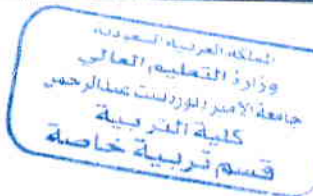 المملكة العربية السعودية
وزارة التعليم العالي
جامعة الأمير نورة بنت عبدالرحمن
كلية التربية
قسم تربية خاصة